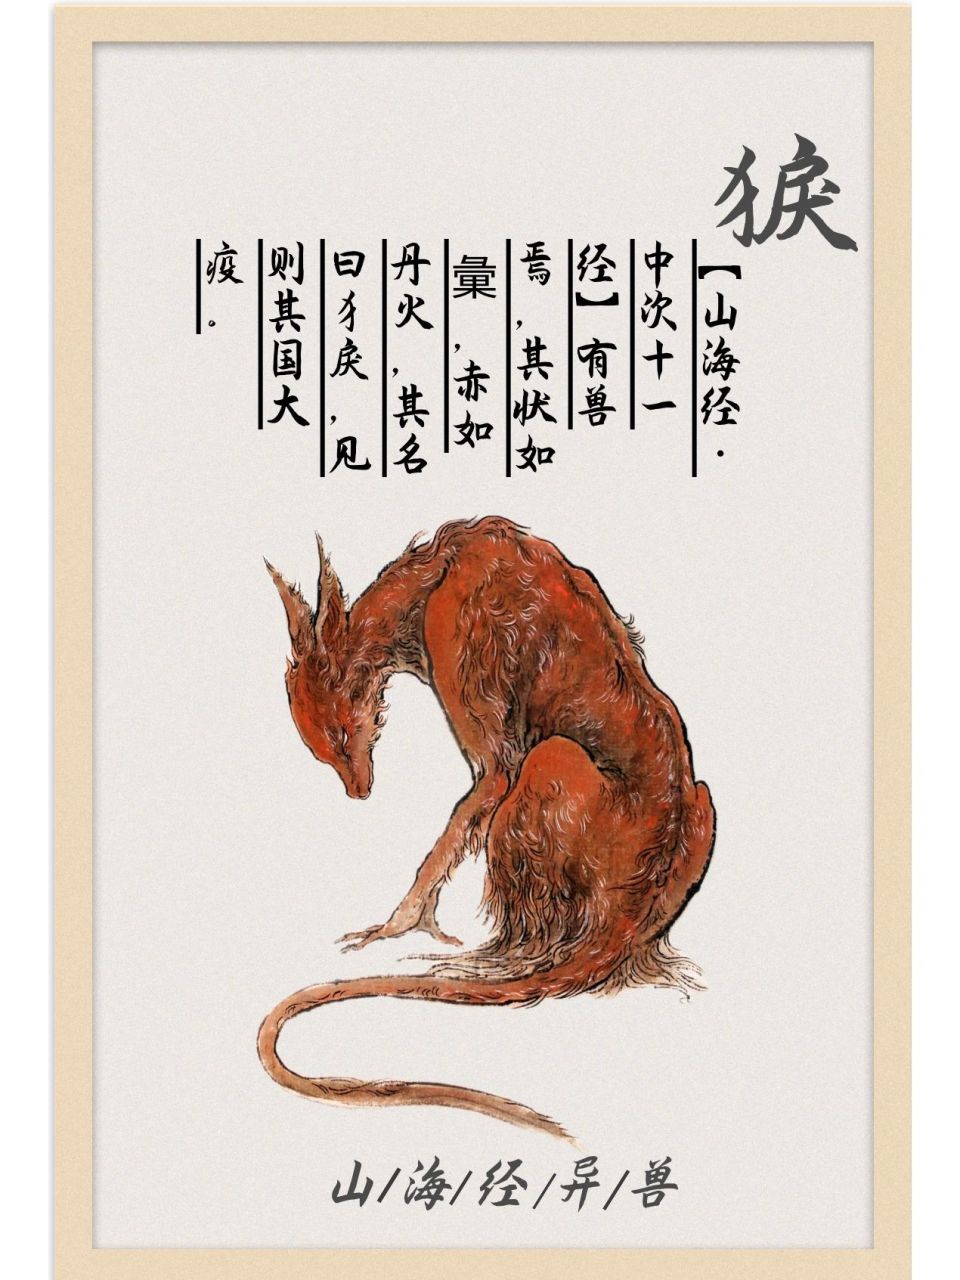 猤
【山海经·
中次十一
经】有兽
焉,其状如
彙,赤如
丹火,其名
曰犭戾,见
则其国大
疫。
山/海/经/异/兽